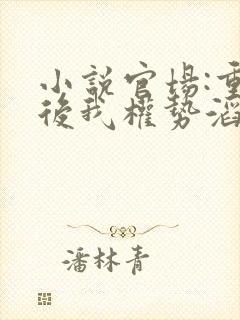 小説官場:重
後我權勢滔
潘林青